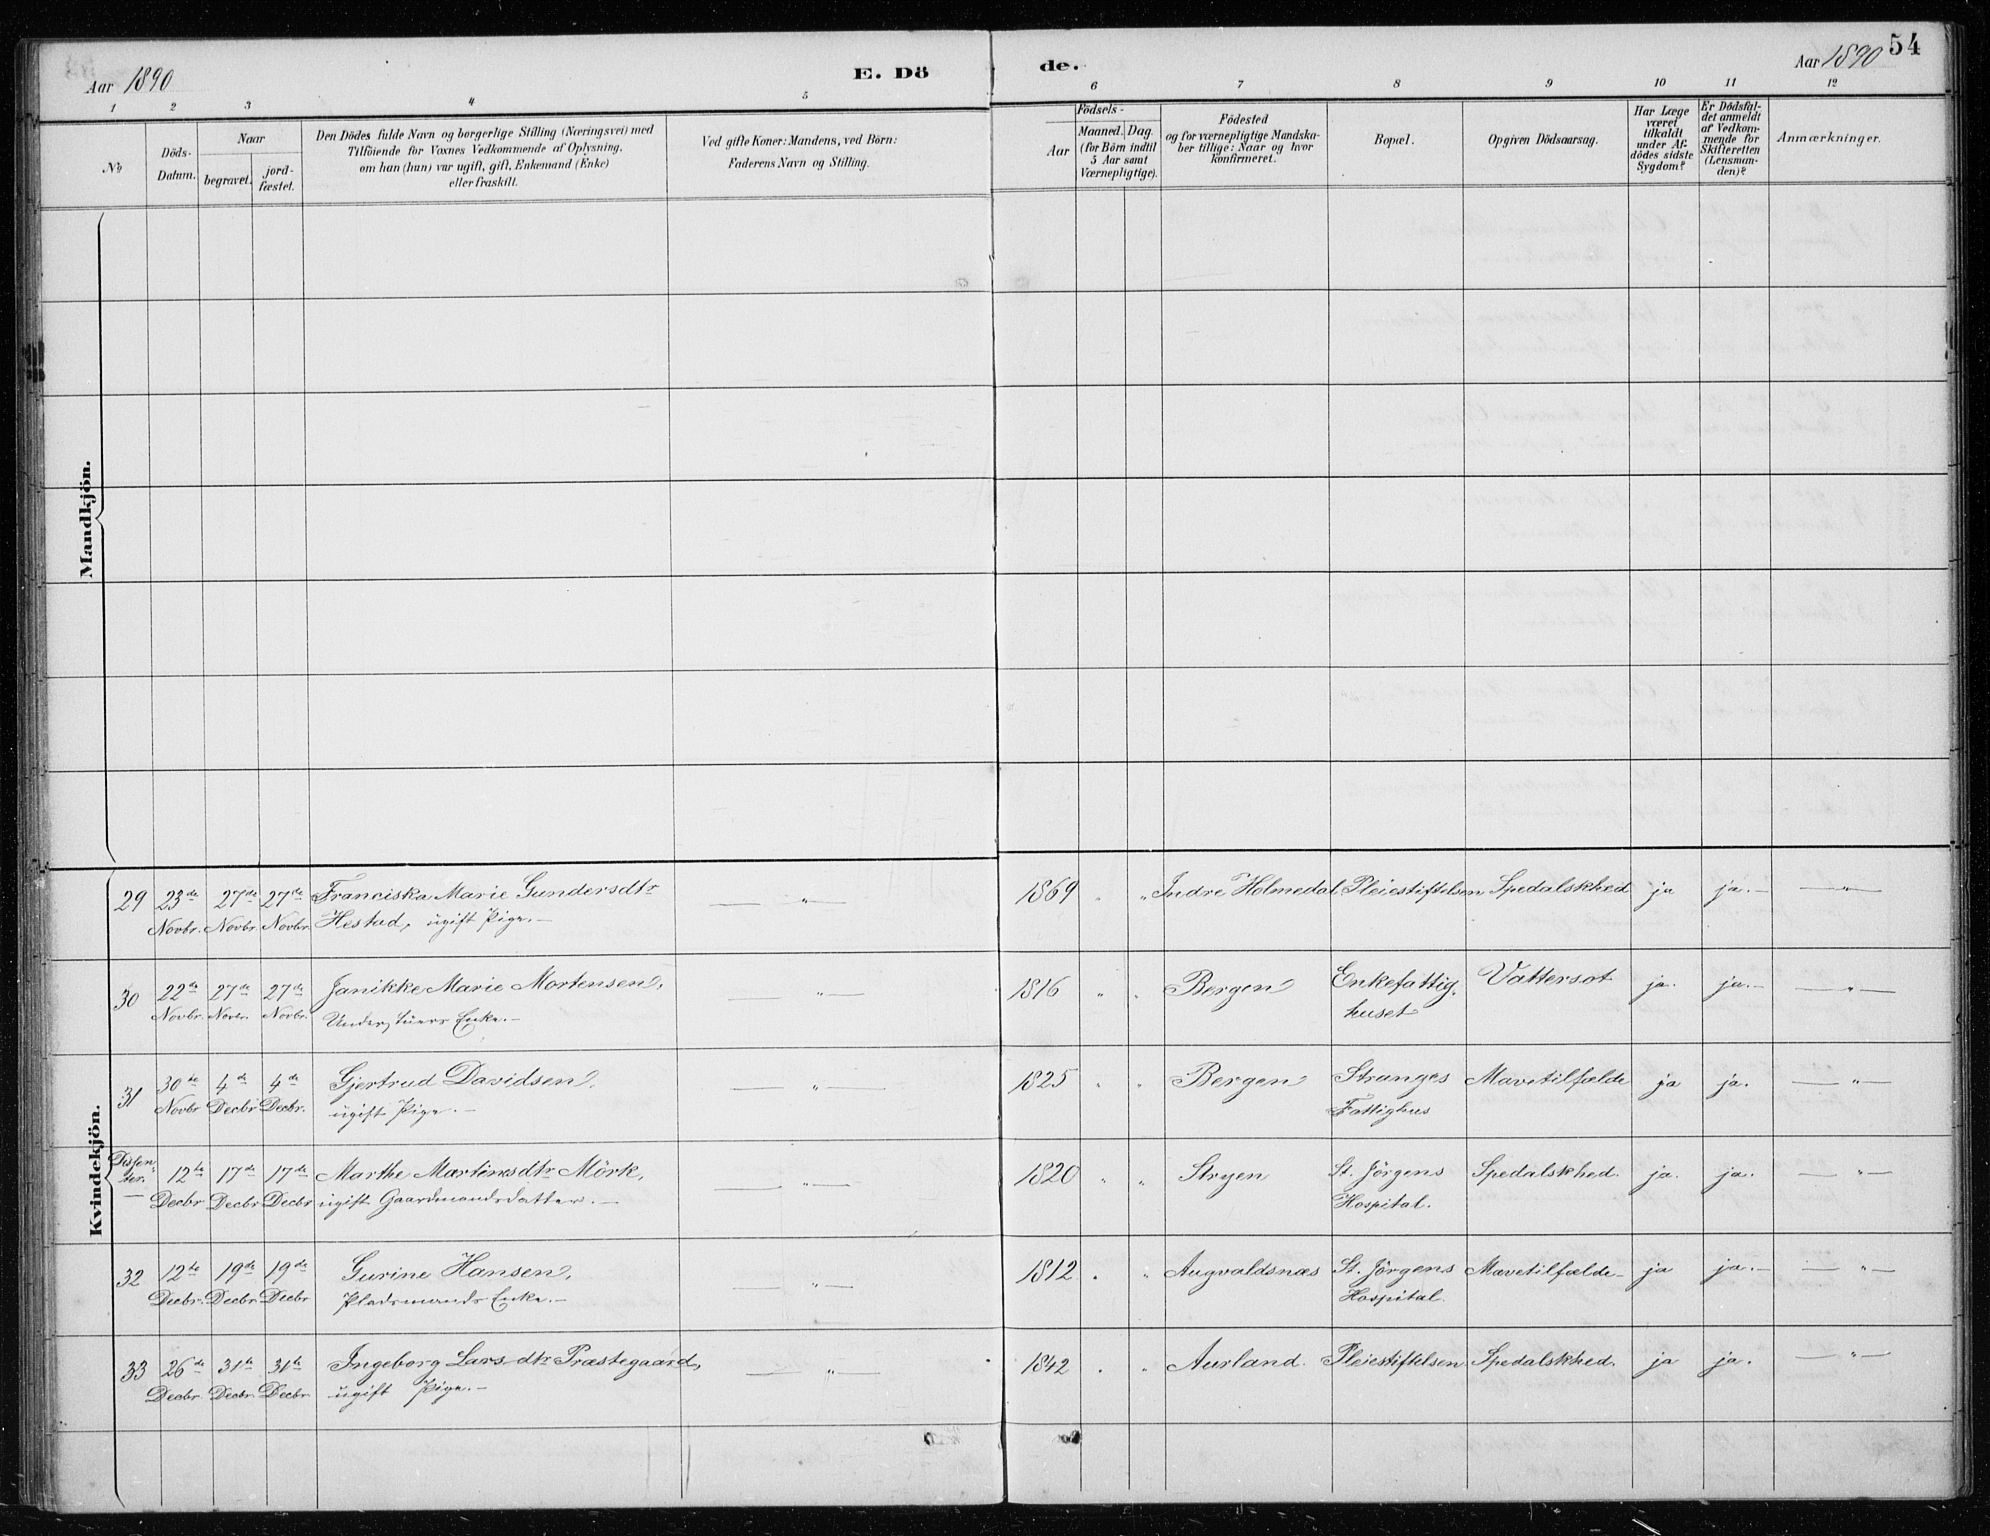 Aar 1890
E. Dö
de.
Aar 1890
54
1
2
3
4
5
6
7
8
9
10
11
12
No
Döds-
Datum.
Naar
begravet.
jord-
fæstet.
Den Dödes fulde Navn og borgerlige Stilling (Næringsvei) med
Tilföiende for Voxnes Vedkommende af Oplysning,
om han (hun) var ugift, gift, Enkemand (Enke)
eller fraskilt.
Ved gifte Koner: Mandens, ved Börn:
Faderens Navn og Stilling.
Födsels-
Aar
Maaned.
Dag.
(for Börn indtil
5 Aar samt
Værnepligtige).
Födested
og for værnepligtige Mandska-
ber tillige: Naar og hvor
konfirmeret.
Bopæl.
Opgiven Dödsaarsag.
Har Læge
været
tilkaldt
under Af-
dödes sidste
Sygdom?
Er Dödsfal-
det anmeldt
af Vedkom-
mende for
Skifteretten
(Lensman-
den)?
Anmærkninger.
Mandkjön.
Kvindekjön.
29 23de 27de 27de Franciska Marie Gundersdtr — " — 1869 " " Indre Holmedal Pleiestiftelsen Spedalskhed ja ja. — — " —
Novbr. Novbr. Novbr. Hestad, ugift Pige. —
30 22de 27de 27de Janikke Marie Mortensen, — " — 1816 " " Bergen Enkefattig- Vattersot ja. ja. — — " —
Novbr. Novbr. Novbr. Enke. — huset
31 30te 4de 4de Gjertrud Davidsen, — " — 1825 " " Bergen Stranges Mavetilfælde ja ja. — " —
Novbr Decbr Decbr. ugift Pige. — Fattighus
Dissen-
ter. 12te 17de 17de Marthe Martinsdtr Mörk, — " — 1820 " " Stryen St. Jörgens Spedalskhed. ja. ja. — " —
— Decbr Decbr Decbr ugift Gaardmandsdatter. — Hospital.
32 12te 19de 19de Gurine Hansen, — " — 1812 . " Augvaldsnæs St. Jörgens Mavetilfælde ja ja. — — " —
Decbr. Decbr Decbr Pladsmands Enke. — Hospital.
33 26de 31te 31te Ingeborg Larsdtr Præstegaard, — " — 1842 . " Aurland. Pleiestiftelsen Spedalskhed. ja ja. — " —
Decbr. Decbr. Decbr ugift Pige. —